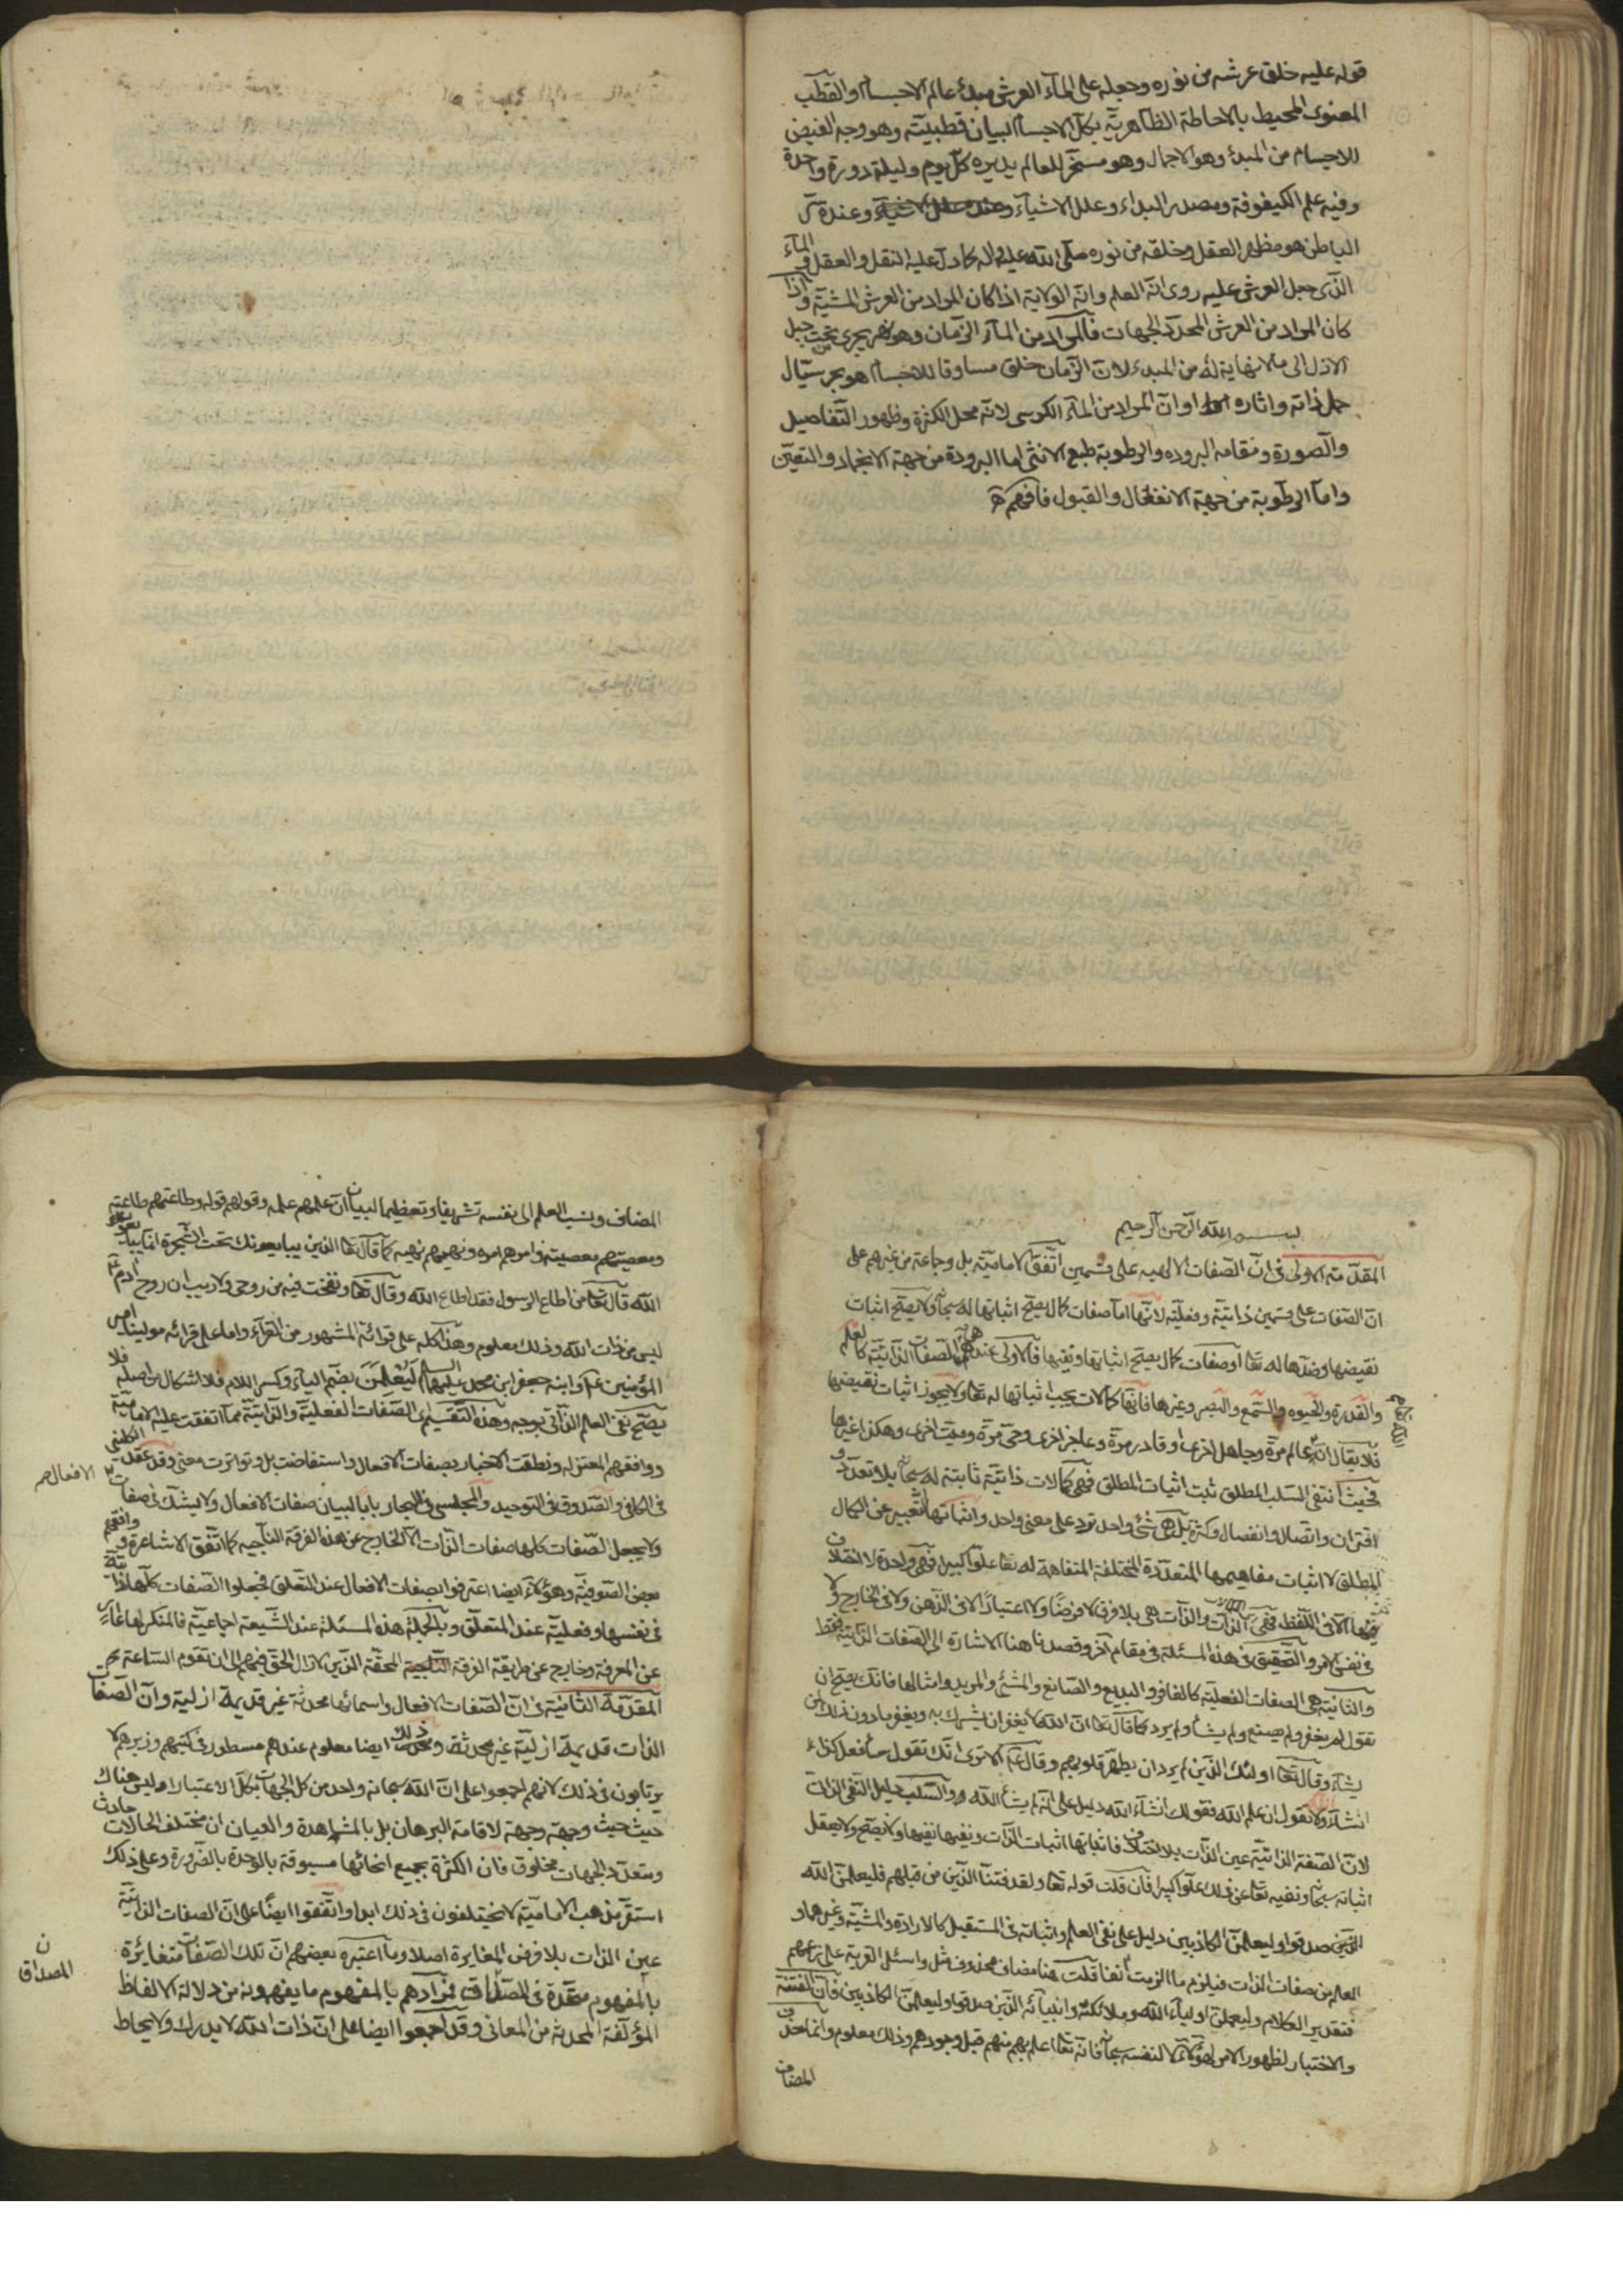 قوله عليه خلق عرشه من نوره وجعله على المآء العرش مبدئ عالم الاجسام والقطب
المعنوى المحيط بالاحاطة الظاهرية بكل الاجسام البيان قطبيته وهو وجه الفيض
للاجسام من المبدء وهو الاجمال وهو مسخر للعالم يديره كل يوم وليلة دورة واحدة
وفيه علم الكيفوفة ومصدر البداء وعلل الاشيآء وعنده
الباطن هو مظهر العقل وخلقه من نوره صلى الله عليه واله كما دل عليه النقل والعقل والمآء
الذى جعل العرش عليه روى انه العلم وانه الولاية اذا كان المراد من العرش المشية واذا
كان المراد من العرش المحدد الجهات فالمراد من المآء الزمان وهو نهر يجرى من تحت جبل
الازل الى ما لا نهاية له من المبدء لان الزمان خلق مساوقا للاجسام هو بحر سيال
حمل ذاته واثاره او ان المراد من المآء الكرسى لانه محل الكثرة وظهور التفاصيل
والصورة ومقامه البرودة والرطوبة طبع الانثى اما البرودة من جهة الانجماد والتعين
واما الرطوبة من جهة الانفعال والقبول فافهم
بسم الله الرحمن الرحيم
المقدمة الاولى فى ان الصفات الالهيه على قسمين اتفق الامامية بل وجماعة من غيرهم على
ان الصفات على قسمين ذاتية وفعلية لانها اما صفات كمال يصح اثباتها له سبحانه ولا يصح اثبات
نقيضها وضدها له تعا او صفات كمال يصح اثباتها ونفيها فالاولى عندهم هى الصفات الذاتية كالعلم
والقدرة والحيوه والسمع والبصر وغيرها فانها كمالات يجب اثباتها له تعا ولا يجوز اثبات نقيضها
فلا يقال انه عالم مرة وجاهل اخرى او قادر مرة وعاجز اخرى وحى مرة وميت اخرى وهكذا غيرها
فحيث انتفى السلب المطلق ثبت اثبات المطلق فهى كمالات ذاتية ثابتة له سبحانه بلا تعدد و
اقتران واتصال وانفصال وكثرة بل هى شئ واحد ترد على معنى واحد وانما هى التعبير عن الكمال
المطلق لا اثبات مفاهيمها المتعددة المختلفة المتفاهمة له تعا علوا كبيرا فهى واحدة لا اختلاف
فيها الا فى اللفظ فهى الذات والذات هى بلا فرق لا فرضا ولا اعتبارا لا فى الذهن ولا فى الخارج ولا
فى نفس الامر والتحقيق فى هذه المسئلة فى مقام آخر وقصدنا هنا الاشارة الى الصفات الذاتية فقط
والثانية هى الصفات الفعلية كالغافر والبديع والصانع والمشئ والمريد وامثالها فانك يصح ان
تقول لم يغفر ولم يصنع ولم يشأ ولم يرد كما قال تعا ان الله لا يغفر ان يشرك به ويغفر ما دون ذلك لمن
يشآء وقال تعا اولئك الذين لم يرد ان يطهر قلوبهم وقال عم الا ترى انك تقول سأفعل كذا
انشآء الله ولا تقول ان علم الله فقولك انشآء الله دليل على انه لم يشأ الله والسلب دليل النفى الذات
لان الصفة الذاتية عين الذات بلا اختلاف فاثباتها اثبات الذات ونفيها نفيها ولا يصح ولا يعقل
اثباته سبحانه ونفيه تعا عن ذلك علوا كبيرا فان قلت قوله تعا ولقد فتنا الذين من قبلهم فليعلمن الله
الذين صدقوا وليعلمن الكاذبين دليل على نفى العلم واثباته فى المستقبل كالارادة والمشية وغيرهما و
العلم من صفات الذات فيلزم ما الزمت آنفا قلت هنا مضاف محذوف مثل واسئل القرية على زعمهم
فتقدير الكلام وليعلمن اوليآء الله وملائكته وانبيآئه الذين صدقوا وليعلمن الكاذبين فان الفتنة
والاختبار لظهور الامر لهؤلاء لا لنفسه سبحانه فانه تعا اعلم بهم منهم قبل وجودهم وذلك معلوم وانما حذف
المضاف
المضاف ونسب العلم الى نفسه تشريفا وتعظيما لبيان ان علمهم علمه وقولهم قوله وطاعتهم طاعته
ومعصيتهم معصيته وامرهم امره ونهيهم نهيه كما قال تعا الذين يبايعونك تحت الشجرة انما يبايعون
الله قال تعا من اطاع الرسول فقد اطاع الله وقال تعا ونفخت فيه من روحى ولا ريب ان روح آدم ع
ليس من ذات الله وذلك معلوم وهذا كله على قرائة المشهور من القرآء واما على قرائه مولينا امير
المؤمنين عم وابنه جعفر ابن محمد عليهما السلم ليعلمن بضم اليآء وكسر اللام فلا اشكال من اصله فلا
يصح نفى العلم الذاتى بوجه وهذا التقسيم اى الصفات الفعلية والذاتية مما اتفقت عليه الامامية
ووافقهم المعتزله ونطقت الاخبار بصفات الافعال واستفاضت بل وتواترت معنى وقد عقد الكلينى
الافعال
فى الكافى والصدوق فى التوحيد والمجلسى فى البحار بابا لبيان صفات الافعال ولا يشك فى صفات
ولا يجعل الصفات كلها صفات الذات الا الخارج عن هذه الفرقة الناجيه كما اتفق الاشاعرة ووافقهم
بعض الصوفية وهؤلاء ايضا اعترفوا بصفات الافعال عند التعلق فجعلوا الصفات كلها ذاتية
فى نفسها وفعلية عند المتعلق وبالجملة هذه المسئلة عند الشيعة اجماعية فالمنكر لها عار
عن المعرفة وخارج عن طريقة الفرقة الناجية المحقة الذين لا زال الحق فيهم الى ان تقوم الساعة
المقدمة الثانية فى ان الصفات الافعال واسمائها محدثة غير قديمة ازلية وان الصفات
الذات قديمة ازلية غير محدثة وذلك ايضا معلوم عندهم مسطور فى كتبهم وزبرهم لا
يرتابون فى ذلك لانهم اجمعوا على ان الله سبحانه واحد من كل الجهات بكل الاعتبارات وليس هناك
حيث حيث وجهة وجهة لاقامة البرهان بل بالمشاهدة والعيان ان مختلف الحالات حادث
ومتعدد الجهات مخلوق فان الكثرة بجميع انحائها مسبوقة بالوحدة بالضرورة وعلى ذلك
استقر مذهب الامامية لا يختلفون فى ذلك ابدا واتفقوا ايضا على ان الصفات الذاتية
عين الذات بلا فرض المغايرة اصلا وما اعتبره بعضهم ان تلك الصفات متغائرة
ن المصداق
بالمفهوم متحدة فى المصداق فمرادهم بالمفهوم ما يفهمونه من دلالة الالفاظ
المؤلفة المحدثة من المعانى وقد اجمعوا ايضا على ان ذات الله لا يدرك ولا يحاط